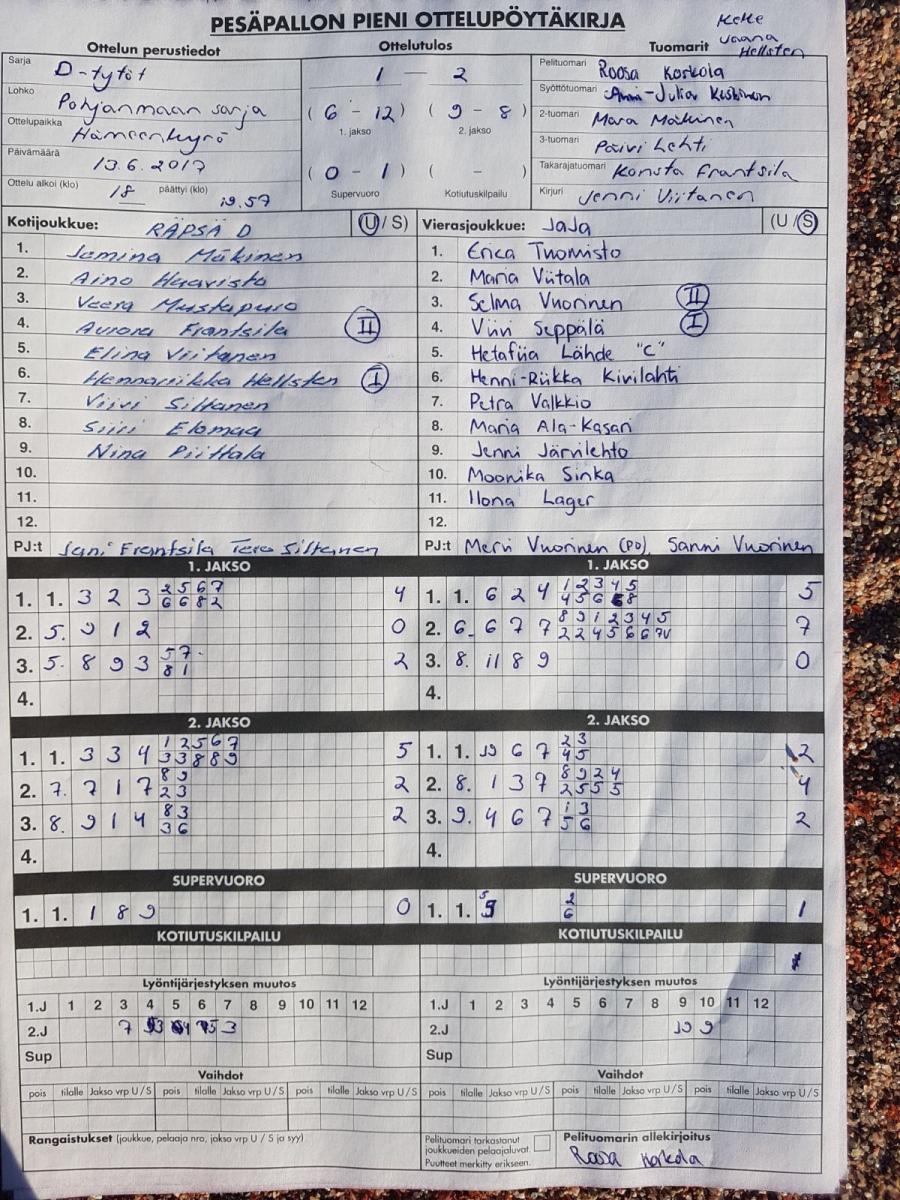 PESÄPALLON PIENI OTTELUPÖYTÄKIRJA
Hellsten
Ottelun perustiedot Ottelutulos Tuomarit
Sarja D-tytöt
Lohko Pohjanmaan sarja
Ottelupaikka Hämeenkyrö
Päivämäärä 13.6.2017
Ottelu alkoi (klo) 18 päättyi (klo) 19.57
1 — 2
( 6 - 12 ) ( 9 - 8 )
1. jakso 2. jakso
( 0 - 1 ) ( - )
Supervuoro Kotiutuskilpailu
Pelituomari Roosa Korkola
Syöttötuomari Anni-Julia Keskinen
2-tuomari Mara Mäkinen
3-tuomari Päivi Lehti
Takarajatuomari Konsta Frantsila
Kirjuri Jenni Viitanen
Kotijoukkue: RÄPSÄ D (U/S)
1. Jemina Mäkinen
2. Aino Haavisto
3. Veera Mustapuro
4. Aurora Frantsila II
5. Elina Viitanen
6. Hennariikka Hellsten I
7. Viivi Siltanen
8. Siiri Elomaa
9. Nina Piittala
10.
11.
12.
PJ:t Jani Frantsila Tero Siltanen
Vierasjoukkue: JaJa (U/S)
1. Erica Tuomisto
2. Maria Viitala
3. Selma Vuorinen II
4. Viivi Seppälä I
5. Hetafiia Lähde "C"
6. Henni-Riikka Kivilahti
7. Petra Valkkio
8. Maria Ala-Kasari
9. Jenni Järvilehto
10. Moonika Sinka
11. Ilona Lager
12.
PJ:t Mervi Vuorinen (PO), Sanni Vuorinen
1. JAKSO 1. JAKSO
1. 1. 3 2 3 2 5 6 7 4
6 6 8 2
2. 5. 9 1 2 0
3. 5. 8 9 3 5 7 2
8 1
4.
1. 1. 6 2 4 1 2 3 4 5 5
4 5 6 8
2. 6. 6 7 7 8 9 1 2 3 4 5 7
2 2 4 5 6 6
3. 8. 11 8 9 0
4.
2. JAKSO 2. JAKSO
1. 1. 3 3 4 1 2 5 6 7 5
3 3 8 8 9
2. 7. 7 1 7 8 9 2
2 3
3. 8. 9 1 4 8 3 2
3 6
4.
1. 1. 10 6 7 2 3 2
4 5
2. 8. 1 3 7 8 9 2 4 4
2 5 5 5
3. 9. 4 6 7 1 3 2
5 6
4.
SUPERVUORO SUPERVUORO
1. 1. 1 8 9 0
1. 1. 2 1
6
KOTIUTUSKILPAILU KOTIUTUSKILPAILU
Lyöntijärjestyksen muutos Lyöntijärjestyksen muutos
1.J 1 2 3 4 5 6 7 8 9 10 11 12 1.J 1 2 3 4 5 6 7 8 9 10 11 12
2.J 7 3 2.J 10 9
Sup Sup
Vaihdot Vaihdot
pois tilalle Jakso vrp U/S pois tilalle Jakso vrp U/S pois tilalle Jakso vrp U/S pois tilalle Jakso vrp U/S pois tilalle Jakso vrp U/S pois tilalle Jakso vrp U/S
Rangaistukset (joukkue, pelaaja nro, jakso vrp U / S ja syy)
Pelituomari tarkastanut
joukkueiden pelaajaluvat.
Puutteet merkitty erikseen.
Pelituomarin allekirjoitus
Roosa Korkola